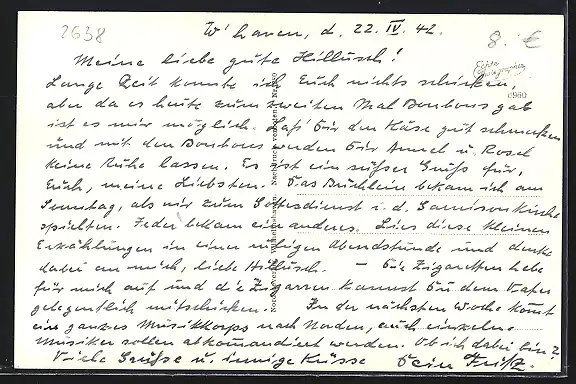 2638
W'haven, d. 22. IV. 42.
8.- €
Meine liebe gute Hillusch!
Echte Photographie
6960
Lange Zeit konnte ich Euch nichts schicken,
aber da es heute zum zweiten Mal Bonbons gab
ist es mir möglich. Laß Dir den Käse gut schmecken
und mit den Bonbons werden Dir Annel u. Rosel
keine Ruhe lassen. Es ist ein süßer Gruß für
Euch, meine Liebsten. Das Büchlein bekam ich am
Sonntag, als wir zum Gottesdienst i. d. Garnisonkirche
spielten. Jeder bekam ein anderes. Lies diese kleinen
Erzählungen in einer ruhigen Abendstunde und denke
dabei an mich, liebe Hillusch. - Die Zigaretten hebe
für mich auf und die Zigarren kannst Du dem Vater
gelegentlich mitschicken. In der nächsten Woche kommt
ein ganzes Musikkorps nach Norden, auch einzelne
Musiker sollen abkommandiert werden. Ob ich dabei bin?
Viele Grüße u. innige Küsse Dein Fritz.
Nachdruck verboten